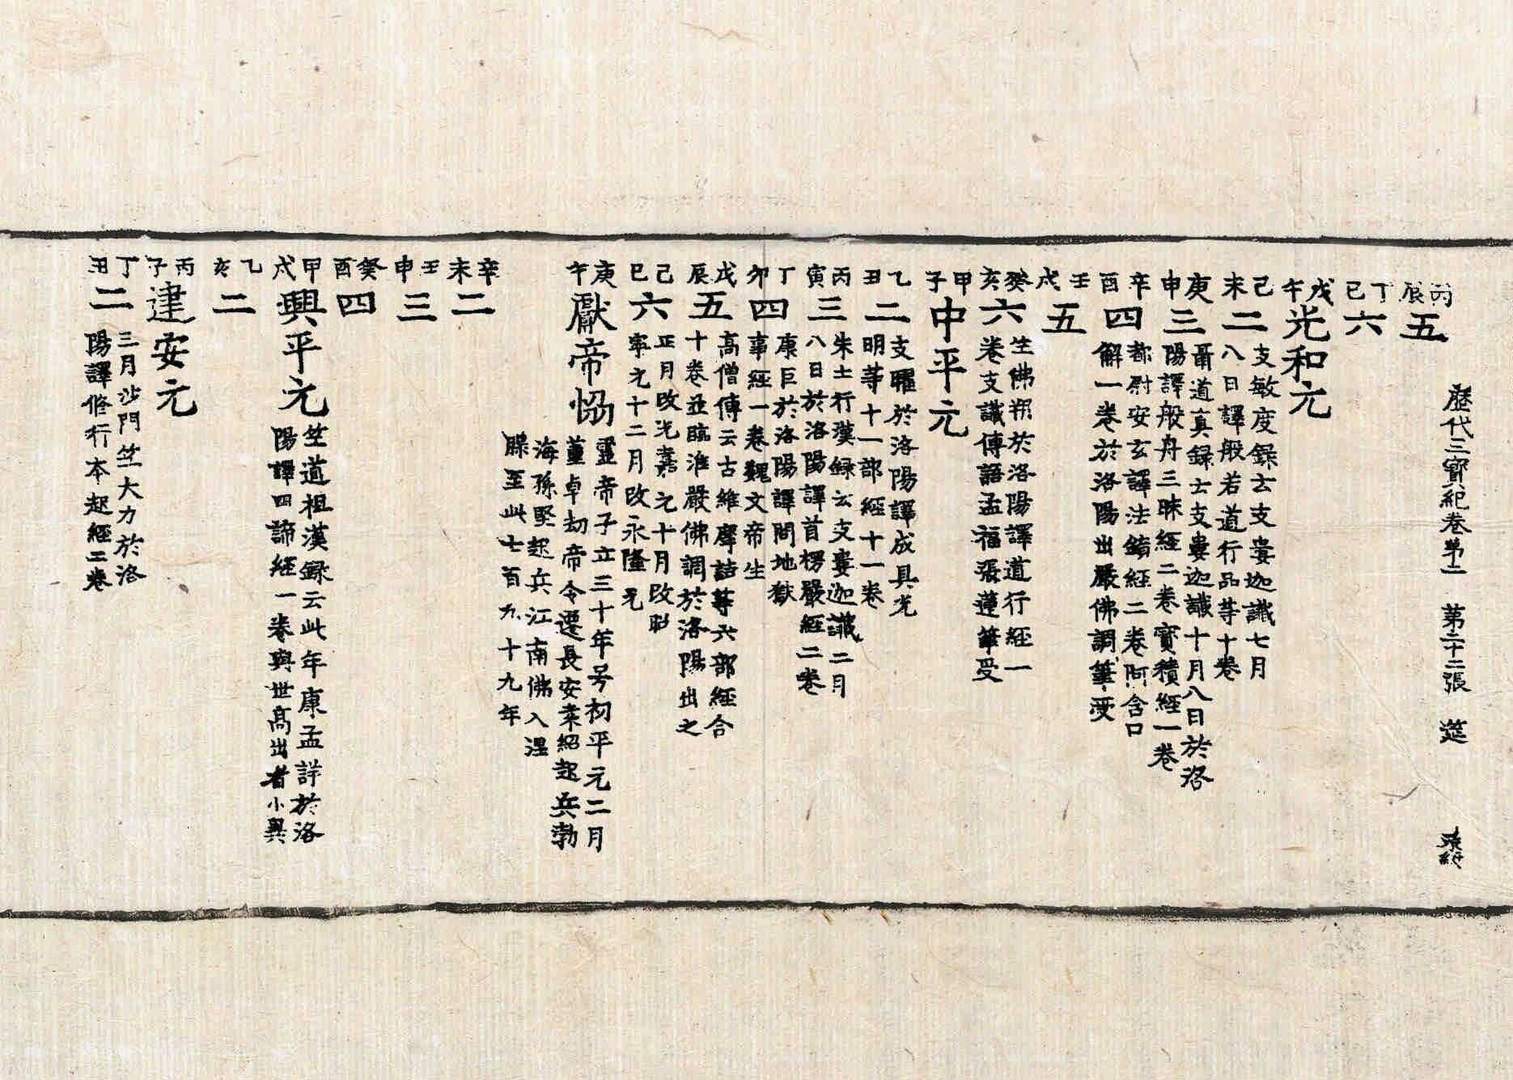 歷代三寶紀卷第二　第二十二張　筵
丙辰
五
丁巳
六
戊午
光和元
己未
二
支敏度錄云支婁迦讖七月
八日譯般若道行品等十卷
庚申
三
聶道真錄云支婁迦讖十月八日於洛
陽譯般舟三昧經二卷寶積經一卷
辛酉
四
都尉安玄譯法鏡經二卷阿含口
解一卷於洛陽出嚴佛調筆受
壬戌
五
癸亥
六
竺佛朔於洛陽譯道行經一
卷支讖傳語孟福張蓮筆受
甲子
中平元
乙丑
二
支曜於洛陽譯成具光
明等十一部經十一卷
丙寅
三
朱士行漢錄云支婁迦讖二月
八日於洛陽譯首楞嚴經二卷
丁卯
四
康巨於洛陽譯問地獄
事經一卷魏文帝生
戊辰
五
高僧傳云古維摩詰等六部經合
十卷並臨淮嚴佛調於洛陽出之
己巳
六
正月改光熹元十月改昭
寧元十二月改永隆元
庚午
獻帝恊
靈帝子立三十年号初平元二月
董卓劫帝令遷長安袁紹起兵勃
海孫堅起兵江南佛入涅
槃至此七百九十九年
辛未
二
壬申
三
癸酉
四
甲戌
興平元
竺道祖漢錄云此年康孟詳於洛
陽譯四諦經一卷與世高出者小異
乙亥
二
丙子
建安元
丁丑
二
三月沙門竺大力於洛
陽譯脩行本起經二卷